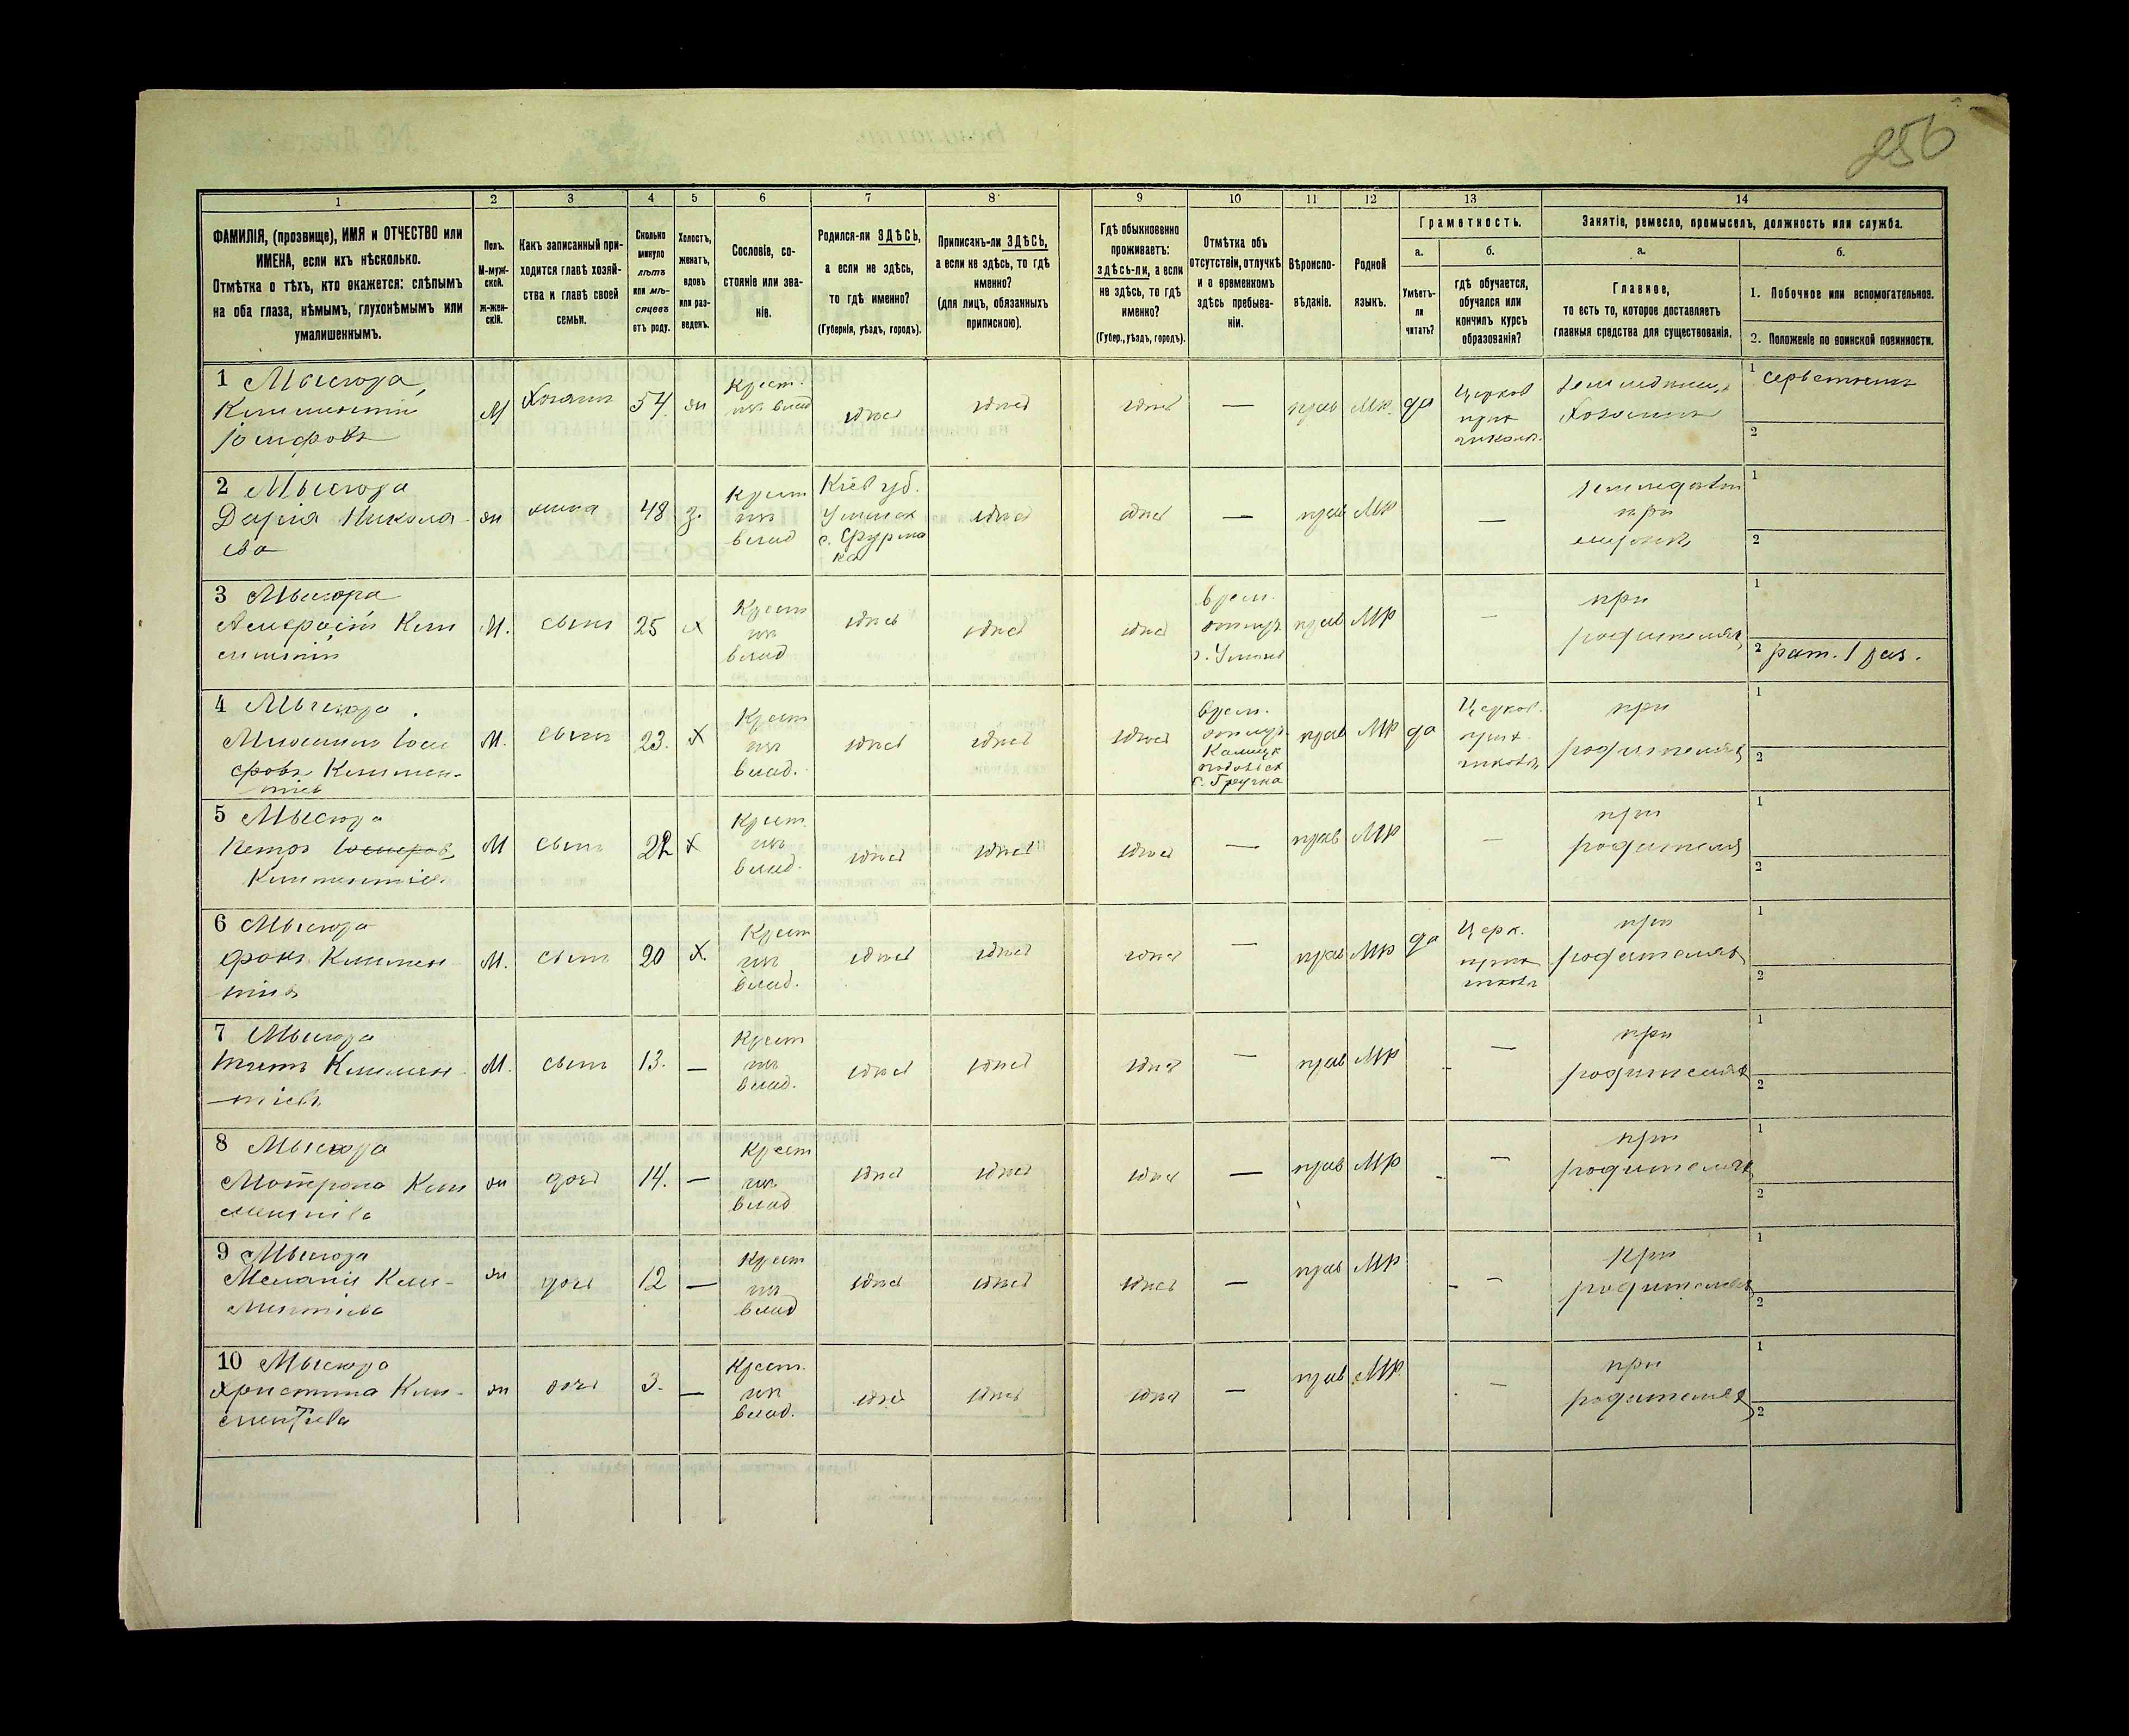 256
1
2
3
4
5
6
7
8
9
10
11
12
13
14
ФАМИЛІЯ, (прозвище), ИМЯ и ОТЧЕСТВО или
ИМЕНА, если ихъ нѣсколько.
Отмѣтка о тѣхъ, кто окажется: слѣпымъ
на оба глаза, нѣмымъ, глухонѣмымъ или
умалишеннымъ.
Полъ.
М-муж-
ской.
ж-жен-
скій.
Какъ записанный при-
ходится главѣ хозяй-
ства и главѣ своей
семьи.
Сколько
минуло
лѣтъ
или мѣ-
сяцевъ
отъ роду.
Холостъ,
женатъ,
вдовъ
или раз-
веденъ.
Сословіе, со-
стояніе или зва-
ніе.
Родился-ли ЗДѢСЬ,
а если не здѣсь,
то гдѣ именно?
(Губернія, уѣздъ, городъ).
Приписанъ-ли ЗДѢСЬ,
а если не здѣсь, то гдѣ
именно?
(для лицъ, обязанныхъ
припискою).
Гдѣ обыкновенно
проживаетъ:
здѣсь-ли, а если
не здѣсь, то гдѣ
именно?
(Губер., уѣздъ, городъ).
Отмѣтка объ
отсутствіи, отлучкѣ
и о временномъ
здѣсь пребыва-
ніи.
Вѣроиспо-
вѣданіе.
Родной
языкъ.
Грамотность.
а.
Умѣетъ-
ли
читать?
б.
гдѣ обучается,
обучался или
кончилъ курсъ
образованія?
Занятіе, ремесло, промыселъ, должность или служба.
а.
Главное,
то есть то, которое доставляетъ
главныя средства для существованія.
б.
1. Побочное или вспомогательное.
2. Положеніе по воинской повинности.
1 Мысюра
Климентій
Іосифовъ
М
Хозяинъ
54
жн
Крест.
изъ влад
здѣсь
здѣсь
здѣсь
—
прав
Мр.
да
Церков
прих
школа
Хозяинъ
1
2
2 Мысюра
Дарія Никола
ева
жн
жена
48
з.
Крест
изъ
влад
Кіев губ.
Уманск
с.
здѣсь
здѣсь
—
прав
Мр
—
при
1
2
3 Мысюра
Кли
М.
сынъ
25
х
Крест
изъ
влад
здѣсь
здѣсь
здѣсь
врем.
г. Умань
прав
Мр
—
при
родителяхъ
1
2 рат. 1 раз.
4 Мысюра
Климен-
тіев
М.
сынъ
23.
х
Крест
изъ
влад.
здѣсь
здѣсь
здѣсь
врем.
прав
Мр
да
Церков.
прих.
школа
при
родителяхъ
1
2
5 Мысюра
Петръ
Климентіев.
М
сынъ
22
х
Крест.
изъ
влад.
здѣсь
здѣсь
здѣсь
—
прав
Мр
—
при
родителя
1
2
6 Мысюра
Климен
тіев
М.
сынъ
20
х.
Крест
изъ
влад.
здѣсь
здѣсь
здѣсь
—
прав
Мр
да
Церк.
прих
школа
при
родителяхъ
1
2
7 Мысюра
Титъ Климен
тіевъ
М.
сынъ
13.
—
Крест
изъ
влад.
здѣсь
здѣсь
здѣсь
—
прав
Мр
—
при
родителяхъ
1
2
8 Мысюра
Мотрона Кли
ментіева
жн
дочь
14.
—
Крест
изъ
влад
здѣсь
здѣсь
здѣсь
—
прав
Мр
—
при
родителяхъ
1
2
9 Мысюра
Меланія Кли-
ментіева
жн
дочь
12
—
Крест
изъ
влад
здѣсь
здѣсь
здѣсь
—
прав
Мр
—
При
родителяхъ
1
2
10 Мысюра
Христина Кли-
ментіева
жн
дочь
3.
—
Крест.
изъ
влад.
здѣсь
здѣсь
здѣсь
—
прав
Мр.
—
при
родителяхъ
1
2